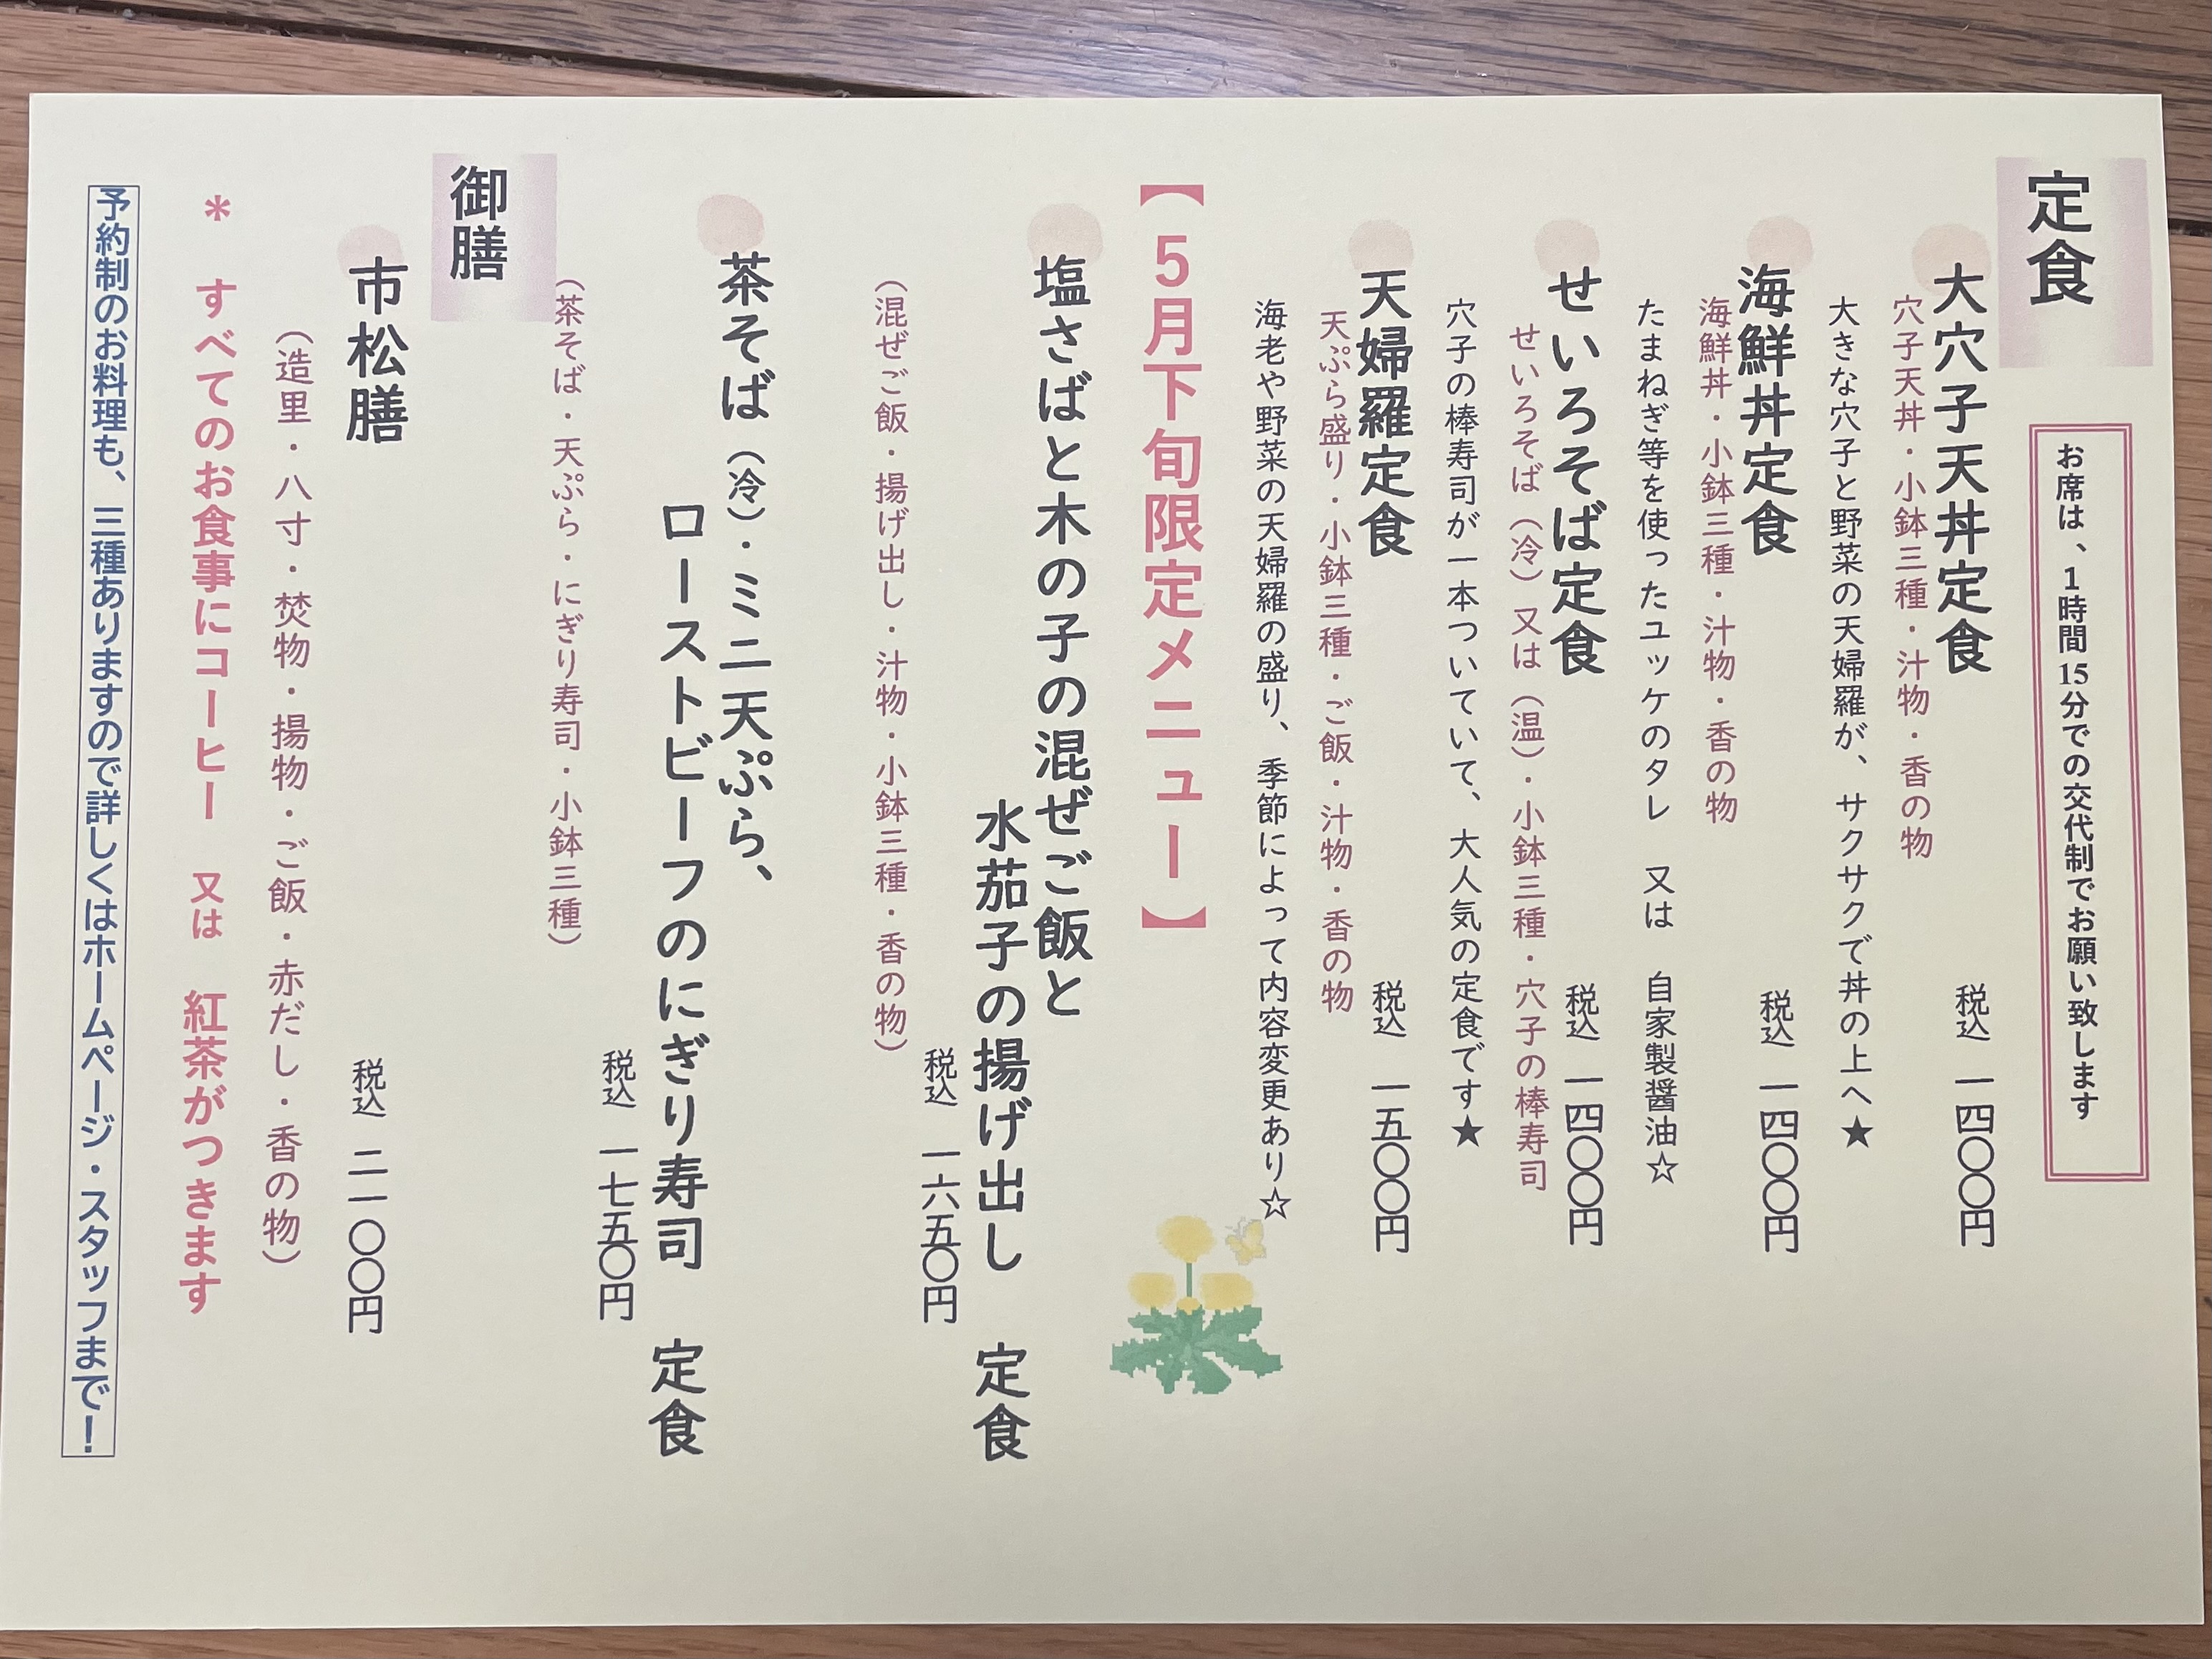 定食
お席は、1時間15分での交代制でお願い致します
大穴子天丼定食
税込 一四〇〇円
穴子天丼・小鉢三種・汁物・香の物
大きな穴子と野菜の天婦羅が、サクサクで丼の上へ★
海鮮丼定食
税込 一四〇〇円
海鮮丼・小鉢三種・汁物・香の物
たまねぎ等を使ったユッケのタレ 又は 自家製醤油☆
せいろそば定食
税込 一四〇〇円
せいろそば（冷）又は（温）・小鉢三種・穴子の棒寿司
穴子の棒寿司が一本ついていて、大人気の定食です★
天婦羅定食
税込 一五〇〇円
天ぷら盛り・小鉢三種・ご飯・汁物・香の物
海老や野菜の天婦羅の盛り、季節によって内容変更あり☆
【5月下旬限定メニュー】
塩さばと木の子の混ぜご飯と
水茄子の揚げ出し 定食
税込 一六五〇円
（混ぜご飯・揚げ出し・汁物・小鉢三種・香の物）
茶そば（冷）・ミニ天ぷら、
ローストビーフのにぎり寿司 定食
税込 一七五〇円
（茶そば・天ぷら・にぎり寿司・小鉢三種）
御膳
市松膳
税込 二一〇〇円
（造里・八寸・焚物・揚物・ご飯・赤だし・香の物）
＊ すべてのお食事にコーヒー 又は 紅茶がつきます
予約制のお料理も、三種ありますので詳しくはホームページ・スタッフまで！